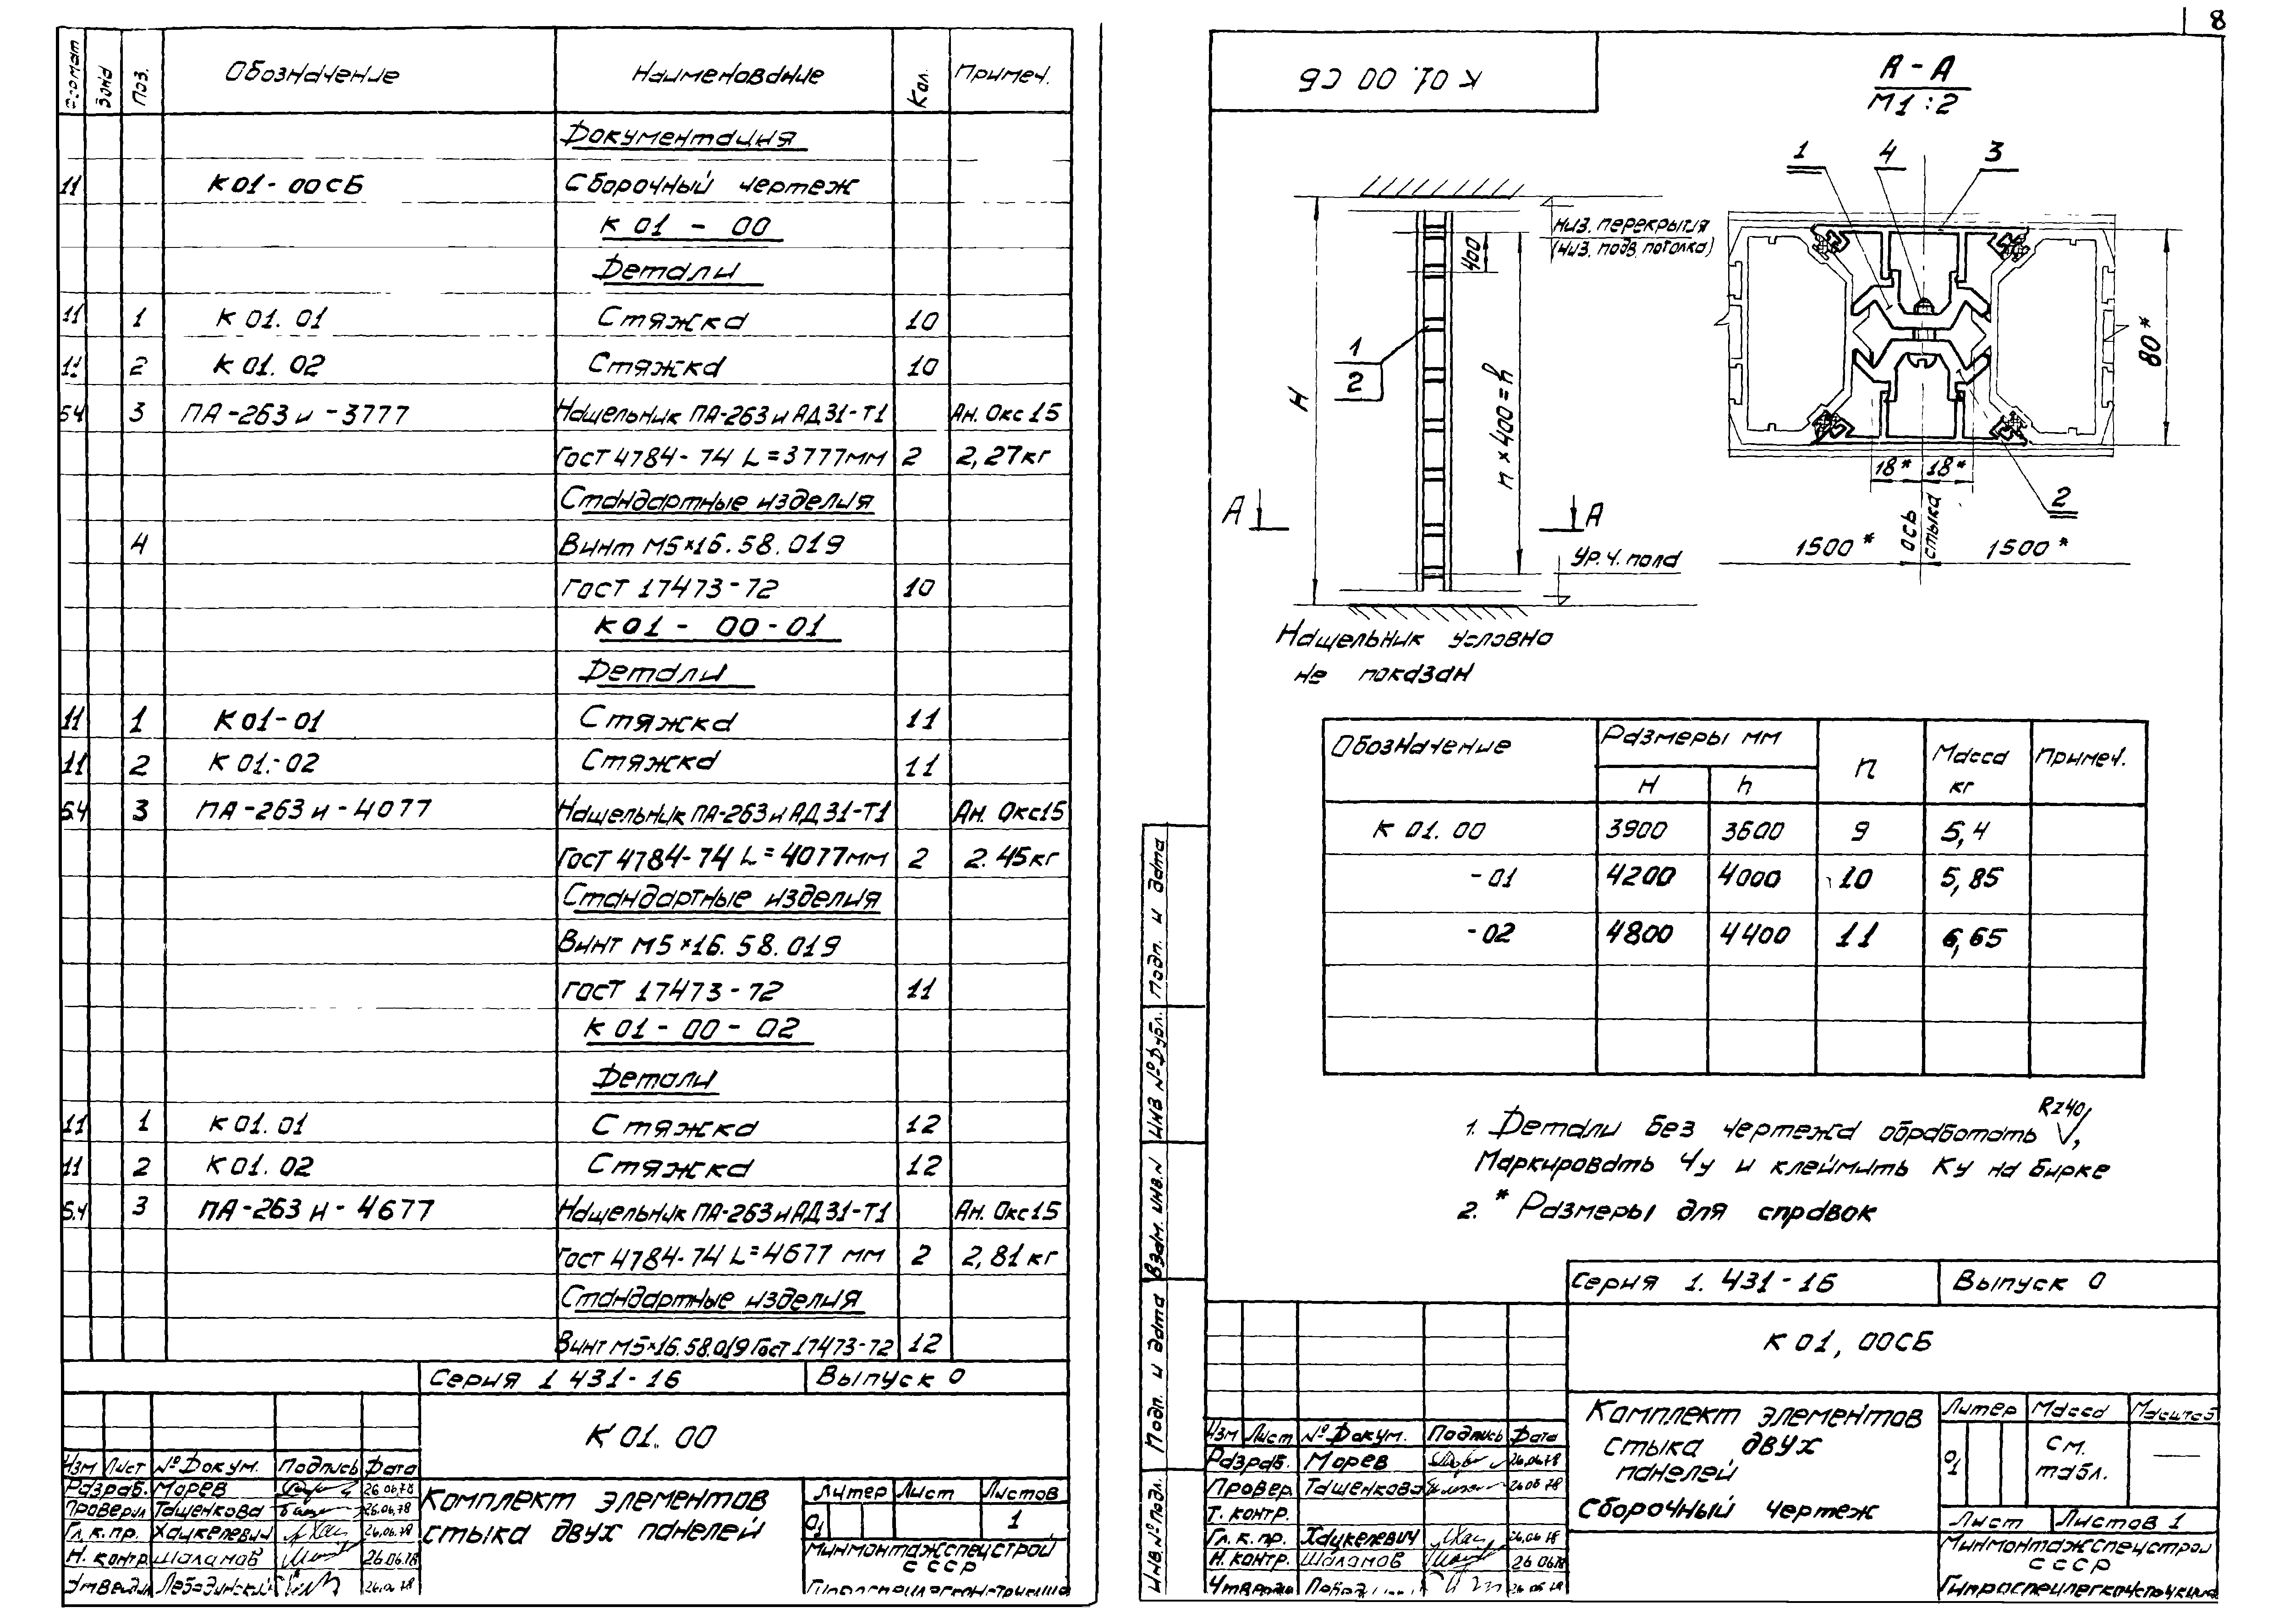 8
Формат Зона Поз. Обозначение Наименование Кол. Примеч.
Документация
11 К 01-00СБ Сборочный чертеж
К 01 - 00
Детали
11 1 К 01.01 Стяжка 10
11 2 К 01.02 Стяжка 10
Б4 3 ПА-263и-3777 Нащельник ПА-263и АД31-Т1 Ан. Окс 15
Гост 4784-74 L=3777мм 2 2,27кг
Стандартные изделия
4 Винт М5×16.58.019
Гост 17473-72 10
К01- 00-01
Детали
11 1 К 01-01 Стяжка 11
11 2 К 01.-02 Стяжка 11
Б4 3 ПА-263и-4077 Нащельник ПА-263и АД31-Т1 Ан. Окс15
Гост 4784-74 L=4077мм 2 2.45кг
Стандартные изделия
Винт М5×16.58.019
гост 17473-72 11
К 01-00-02
Детали
11 1 К 01.01 Стяжка 12
11 2 К 01.02 Стяжка 12
Б4 3 ПА-263и-4677 Нащельник ПА-263и АД31-Т1 Ан. Окс15
Гост 4784-74 L=4677 мм 2 2,81кг
Стандартные изделия
Винт М5×16.58.019 Гост 17473-72 12
Серия 1 431-16 Выпуск 0
К 01. 00
Изм Лист №Докум. Подпись Дата
Разраб. Морев 26.06.78
Проверил Ташенкова 26.06.78
Гл.к.пр. Хацкелевич 26.06.78
Н. контр. Шаламов 26.06.78
Утвердил Лебединский
Комплект элементов
стыка двух панелей
Литер Лист Листов
01 1
Минмонтажспецстрой
СССР
К 01. 00 СБ
А - А
М1:2
1 4 3
80*
18* 18*
2
ось стыка
1500* 1500*
Низ. перекрытия
(низ. подв. потолка)
400
1
2
H
n×400=h
А А
Ур.ч. пола
Нащельник условно
не показан
Обозначение Размеры мм n Масса кг Примеч.
H h
К 01.00 3900 3600 9 5,4
-01 4200 4000 10 5,85
-02 4800 4400 11 6,65
1. Детали без чертежа обработать Rz40,
Маркировать Чу и клеймить Ку на бирке
2. * Размеры для справок
Инв.№подл. Подп. и дата Взам. инв.N Инв №дубл. Подп. и дата
Серия 1. 431-16 Выпуск 0
К 01, 00СБ
Изм Лист №Докум. Подпись Дата
Разраб. Морев 26.06.78
Провер. Ташенкова 26.06 78
Т. контр.
Гл.к.пр. Хацкелевич 26.06 78
Н.контр. Шаламов 26 06.78
Комплект элементов
стыка двух
панелей
Сборочный чертеж
Литер Масса Масштаб
01 см. табл. —
Лист Листов 1
Минмонтажспецстрой
СССР